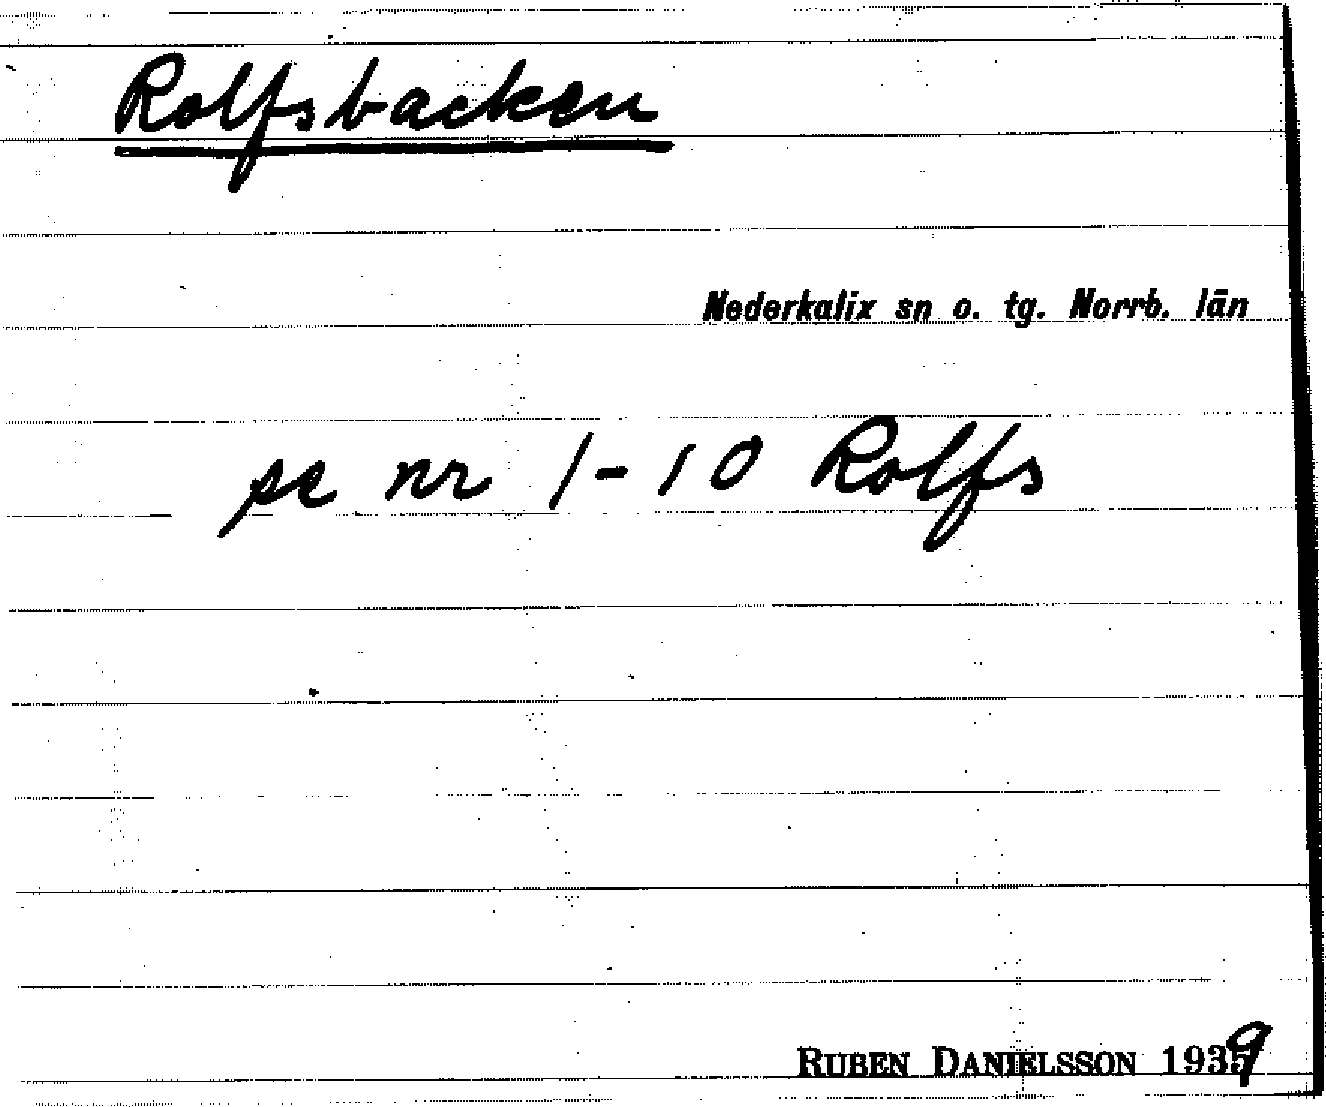 Rolfsbacken
Nederkalix sn o. tg. Norrb. län
se nr 1-10 Rolfs
RUBEN DANIELSSON 1939